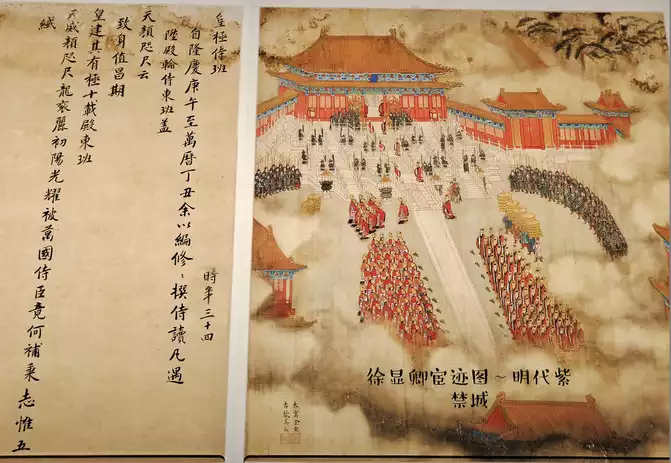 皇極侍班
時年三十四
自隆慶庚午至萬曆丁丑余以編修〻撰侍讀凡遇
陛殿輪侍東班蓋
天顏咫尺云
致身值昌期
皇建其有極十載殿東班
天威顏咫尺龍袞麗初陽光耀被萬國侍臣竟何補秉志惟五
絨
徐显卿宦迹图～明代紫
禁城